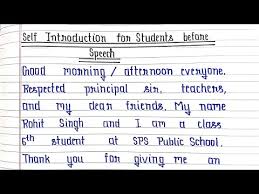 Self Introduction for Students before
Speech
Good morning / afternoon everyone.
Respected principal sir, teachers,
and my dear friends. My name
Rohit Singh and I am a class
6th student at SPS Public School.
Thank you for giving me an